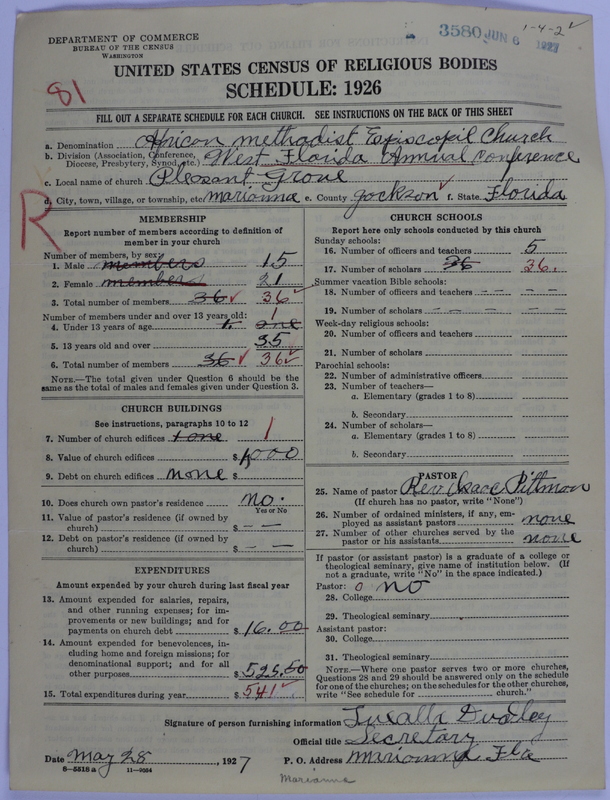 DEPARTMENT OF COMMERCE
BUREAU OF THE CENSUS
WASHINGTON
3580 JUN 6 1927
1-4-2 ✓
81
UNITED STATES CENSUS OF RELIGIOUS BODIES
SCHEDULE: 1926
FILL OUT A SEPARATE SCHEDULE FOR EACH CHURCH. SEE INSTRUCTIONS ON THE BACK OF THIS SHEET
a. Denomination African methodist Episcopil Church
b. Division (Association, Conference, Diocese, Presbytery, Synod, etc.) West Florida Annual Conference
c. Local name of church Pleasant Grove
d. City, town, village, or township, etc. marionna e. County Jackson ✓ f. State Florida
R
MEMBERSHIP
Report number of members according to definition of
member in your church
Number of members, by sex:
1. Male members 15
2. Female members 21
3. Total number of members 36 ✓ 36 ✓
Number of members under and over 13 years old:
4. Under 13 years of age 1. one 1
5. 13 years old and over 35
6. Total number of members 36 ✓ 36 ✓
NOTE.—The total given under Question 6 should be the
same as the total of males and females given under Question 3.
CHURCH BUILDINGS
See instructions, paragraphs 10 to 12
7. Number of church edifices 1 one 1
8. Value of church edifices $ 1000
9. Debt on church edifices none $
10. Does church own pastor's residence no.
Yes or No
11. Value of pastor's residence (if owned by
church) $ — —
12. Debt on pastor's residence (if owned by
church) $ — —
EXPENDITURES
Amount expended by your church during last fiscal year
13. Amount expended for salaries, repairs,
and other running expenses; for im-
provements or new buildings; and for
payments on church debt $ 16.00
14. Amount expended for benevolences, in-
cluding home and foreign missions; for
denominational support; and for all
other purposes $ 525.50
15. Total expenditures during year $ 541 ✓
CHURCH SCHOOLS
Report here only schools conducted by this church
Sunday schools:
16. Number of officers and teachers 5
17. Number of scholars 36 26.
Summer vacation Bible schools:
18. Number of officers and teachers — — —
19. Number of scholars — — — —
Week-day religious schools:
20. Number of officers and teachers
21. Number of scholars
Parochial schools:
22. Number of administrative officers
23. Number of teachers—
a. Elementary (grades 1 to 8)
b. Secondary
24. Number of scholars—
a. Elementary (grades 1 to 8)
b. Secondary
PASTOR
25. Name of pastor Rev Isaac Pittman
(If church has no pastor, write "None")
26. Number of ordained ministers, if any, em-
ployed as assistant pastors none
27. Number of other churches served by the
pastor or his assistants none
If pastor (or assistant pastor) is a graduate of a college or
theological seminary, give name of institution below. (If
not a graduate, write "No" in the space indicated.)
Pastor: 0 no
28. College
29. Theological seminary
Assistant pastor:
30. College
31. Theological seminary
NOTE.—Where one pastor serves two or more churches,
Questions 28 and 29 should be answered only on the schedule
for one of the churches; on the schedules for the other churches,
write "See schedule for church."
Signature of person furnishing information Dudley
Official title Secretary
Date May 28, 1927 P. O. Address Marionna Fla
8—5518 a 11—9204
Marianna